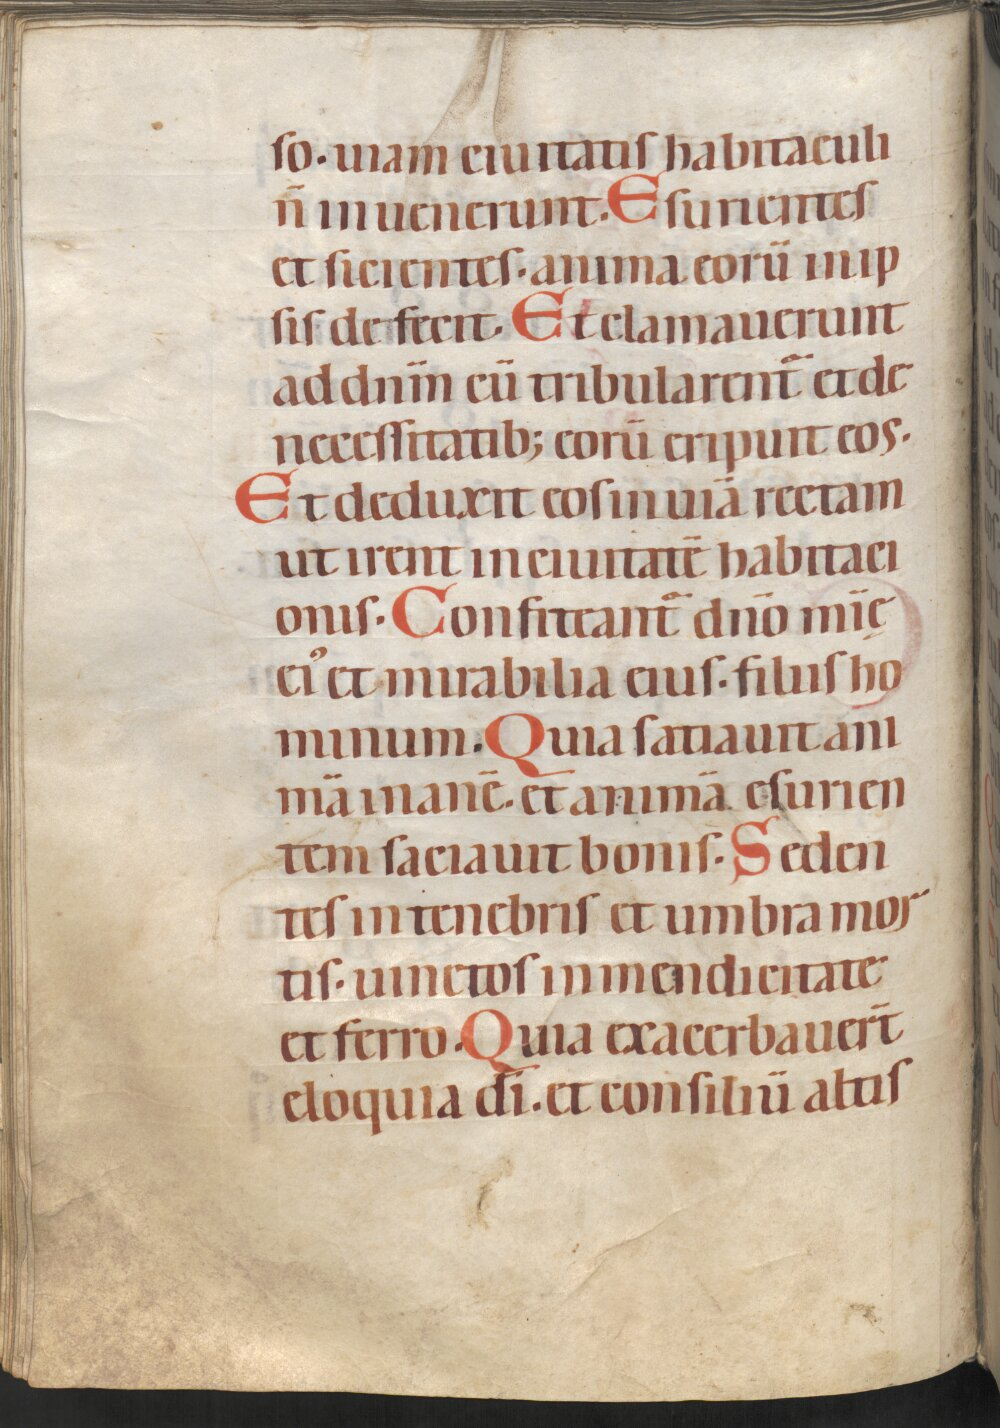 so. uiam ciuitatis habitaculi
n̄ inuenerunt. Esurientes
et sicientes. anima eorū in ip
sis defecit. Et clamauerunt
ad dn̄m cū tribularent᷑ et de
necessitatib; eorū eripuit eos.
Et deduxit eos in uiā rectam
ut irent in ciuitatē habitaci
onis. Confiteant᷑ dn̄o mīę
ei᾿ et mirabilia eius. filiis ho
minum. Quia satiauit ani
mā inanē. et animā esurien
tem saciauit bonis. Seden
tes in tenebris et umbra mor
tis. uinctos in mendicitate
et ferro. Quia exacerbauer̄t
eloquia dī. et consiliū altis